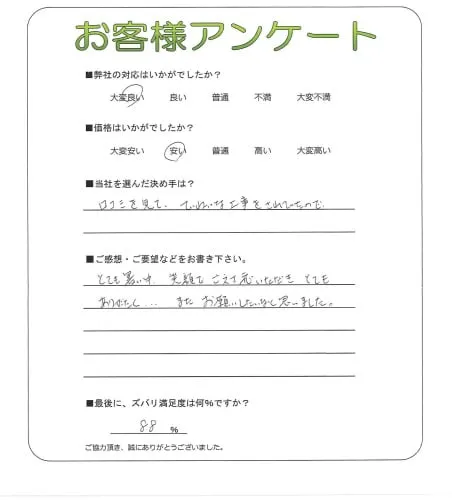 お客様アンケート
■弊社の対応はいかがでしたか?
大変良い 良い 普通 不満 大変不満
■価格はいかがでしたか?
大変安い 安い 普通 高い 大変高い
■当社を選んだ決め手は?
口コミを見て、ていねいな工事をされていたので、
■ご感想・ご要望などをお書き下さい。
とても暑い中、笑顔で 応いただき とても
ありがたく... また お願いしたいなと思いました。
■最後に、ズバリ満足度は何%ですか?
88 %
ご協力頂き、誠にありがとうございました。